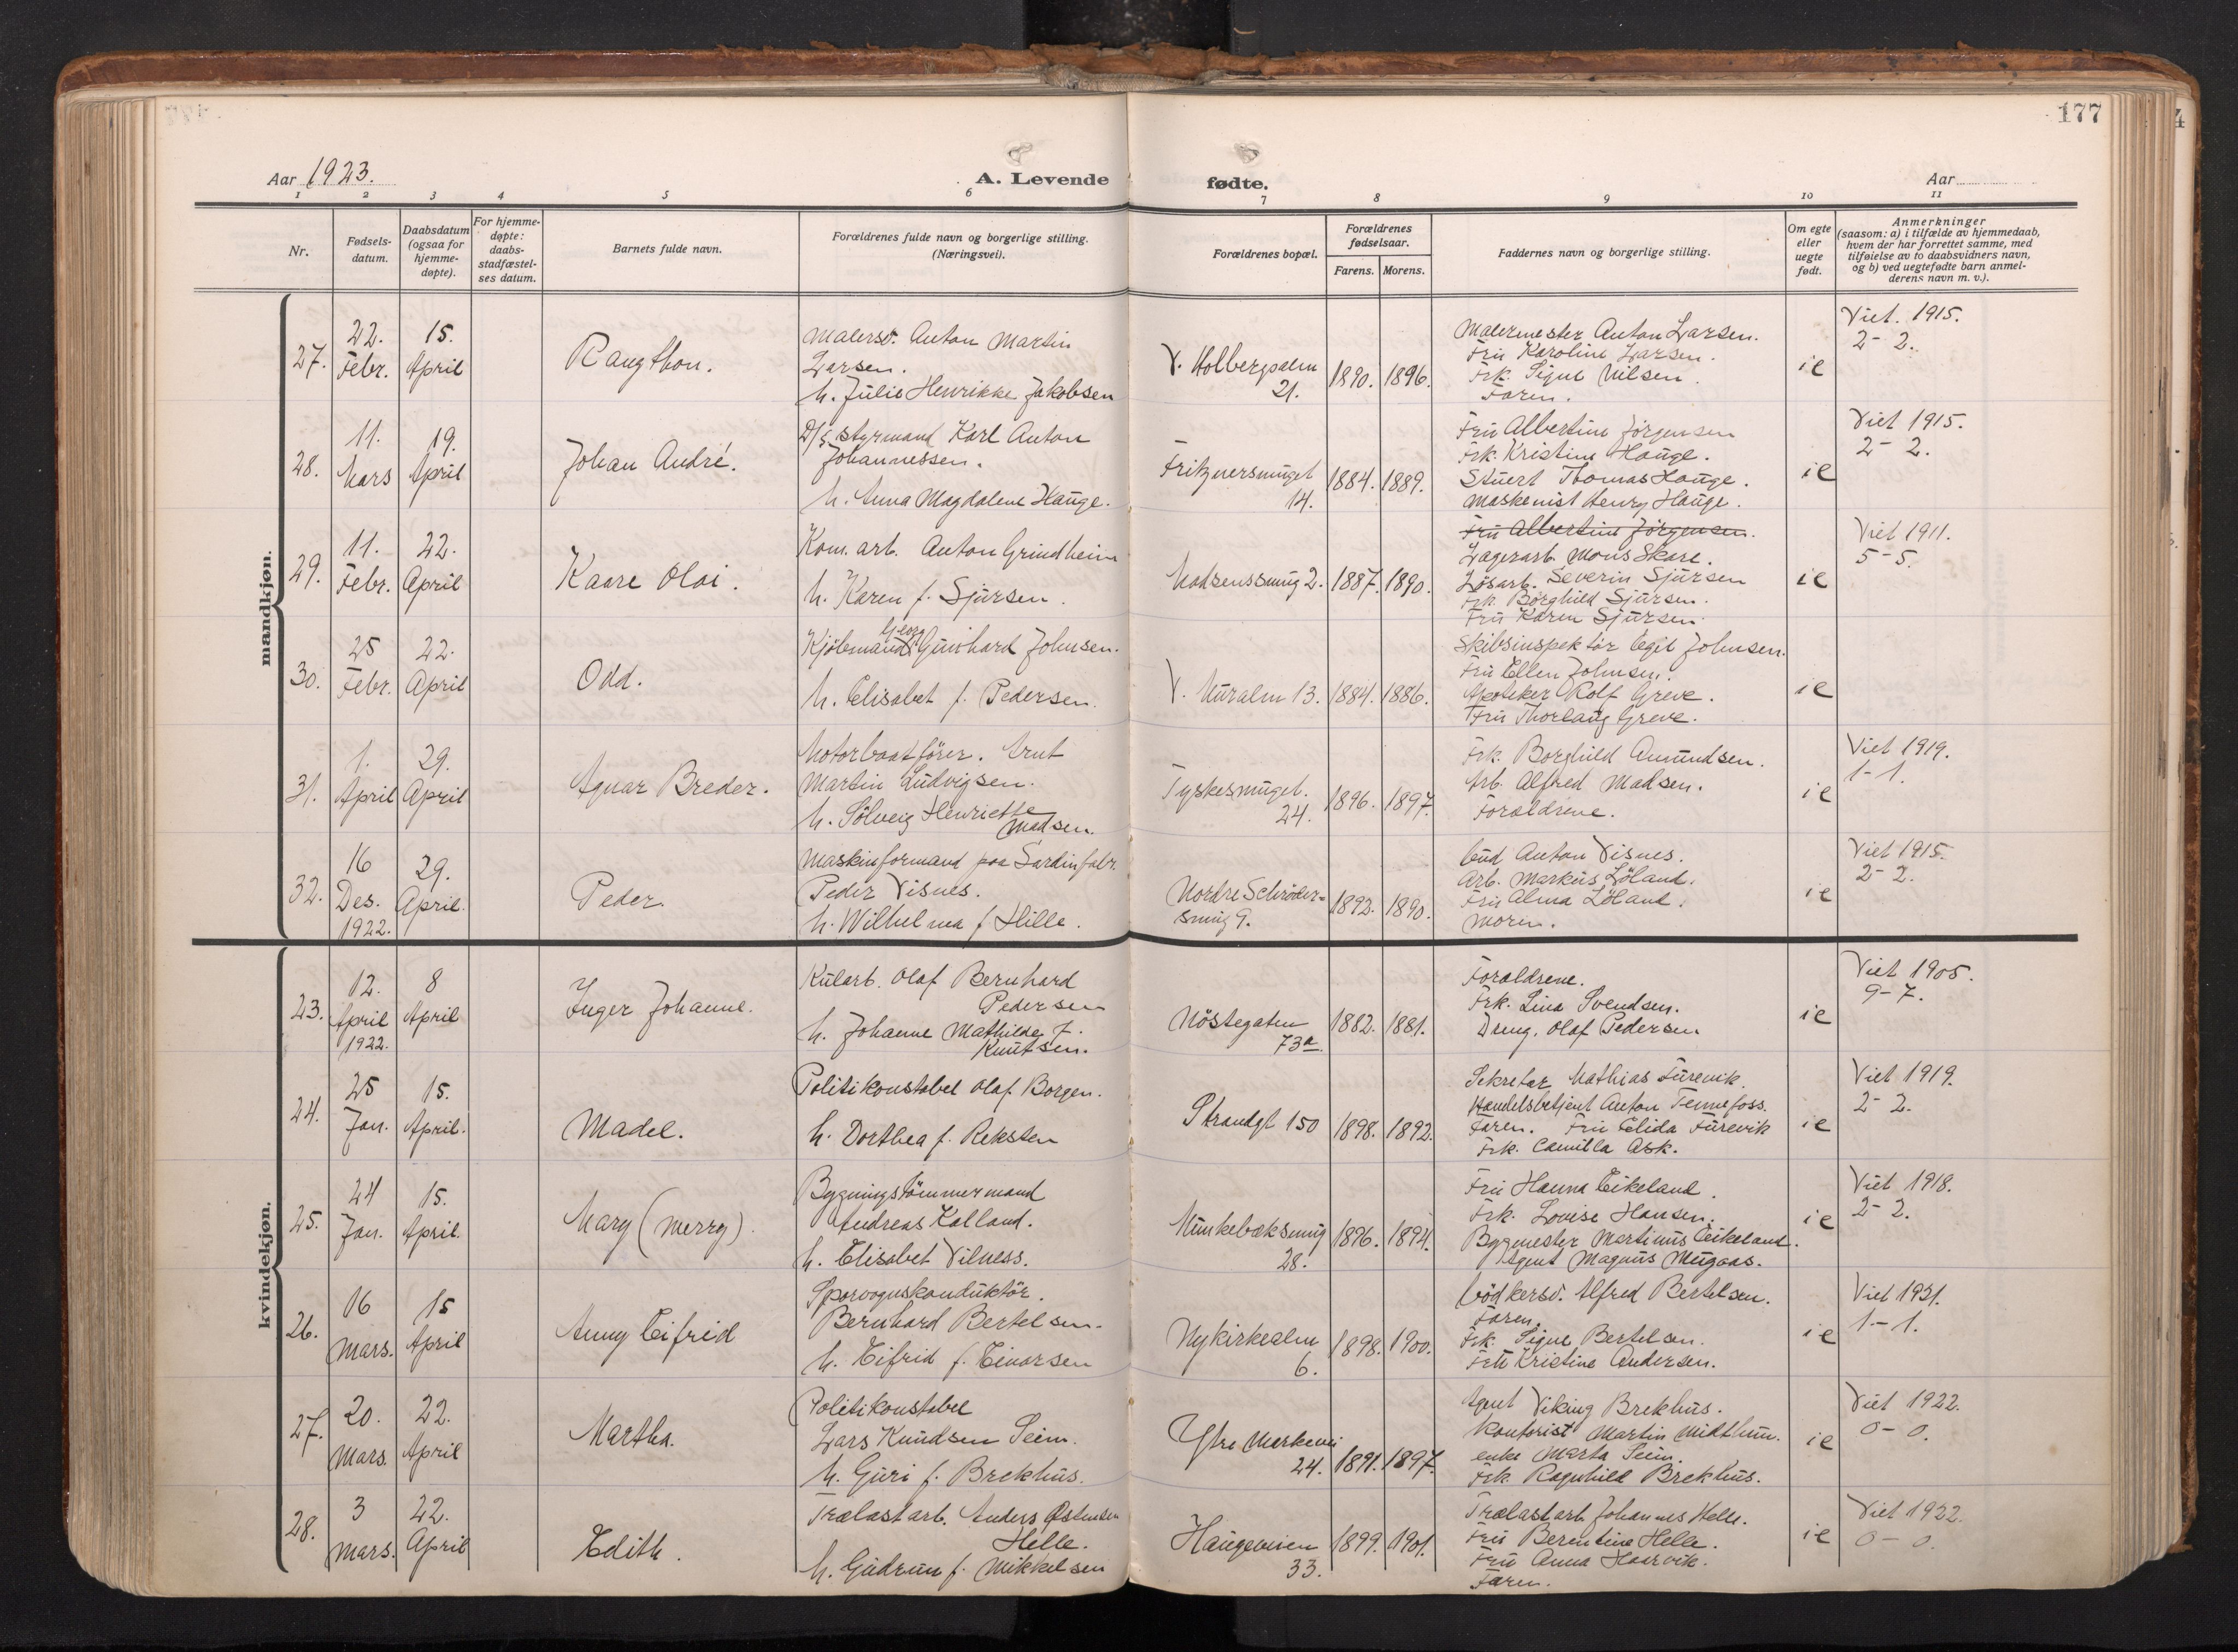 177
Aar 1923.
A. Levende
fødte.
Aar
1 2 3 4 5 6 7 8 9 10 11
Nr.
Fødsels-
datum.
Daabsdatum
(ogsaa for
hjemme-
døpte).
For hjemme-
døpte:
daabs-
stadfæstel-
ses datum.
Barnets fulde navn.
Forældrenes fulde navn og borgerlige stilling.
(Næringsvei).
Forældrenes bopæl.
Forældrenes
fødselsaar.
Farens. Morens.
Faddernes navn og borgerlige stilling.
Om egte
eller
uegte
født.
Anmerkninger
(saasom: a) i tilfælde av hjemmedaab,
hvem der har forrettet samme, med
tilføielse av to daabsvidners navn,
og b) ved uegtefødte barn anmel-
derens navn m. v.).
mandkjøn.
27.
22.
Febr.
15.
April
Rangthon.
Malersv. Anton Martin
Larsen.
h. Julie Henrikke Jakobsen
V. Holbergsalm
21.
1890. 1896.
Malermester Anton Larsen.
Fru Karoline Larsen.
Frk. Signe Nilsen.
Faren.
ie
Viet. 1915.
2-2.
28.
11.
Mars
19.
April
Johan André.
D/s styrmand Karl Anton
Johannessen.
h. Anna Magdalene Hauge.
Fritznersmuget
14.
1884. 1889.
Fru Albertine Jörgensen
Frk. Kristine Hauge.
Stuert Thomas Hauge.
Maskenist Henry Hauge.
ie
Viet 1915.
2-2.
29.
11.
Febr.
22.
April
Kaare Olai.
Kom. arb. Anton Grindheim
h. Karen f. Sjursen.
Madsenssmug 2.
1887. 1890.
Fru Albertine Jörgensen.
Lagerarb. Mons Skare.
Lösarb. Severin Sjursen
Frk. Borghild Sjursen.
Fru Karen Sjursen.
ie
Viet 1911.
5-5.
30.
25
Febr.
22.
April
Odd.
Georg
Kjöbmand Gunhard Johnsen.
h. Elisabet f. Pedersen.
V. Muralm 13.
1884. 1886.
Skibsinspektör Egil Johnsen.
Fru Ellen Johnsen.
Apoteker Rolf Greve.
Fru Thorlaug Greve.
ie
31.
1.
April
29.
April
Agnar Breder.
Motorbaatförer. Arnt
Martin Ludvigsen.
h. Sölveig Henriette
Madsen.
Tyskesmuget.
24.
1896. 1897.
Frk. Borghild Amundsen.
Arb. Alfred Madsen.
Forældrene.
ie
Viet 1919.
1-1.
32.
16
Des.
1922.
29.
April.
Peder.
Maskinformand paa Sardinfabr.
Peder Visnes.
h. Wilhelma f. Hille.
Nordre Schröder-
smug 9.
1892. 1890.
Bud Anton Visnes.
Arb. Markus Löland.
Fru Alma Löland.
Moren.
ie
Viet 1915.
2-2.
kvindekjøn.
23.
12.
April
1922.
8
April
Inger Johanne.
Kularb. Olaf Bernhard
Pedersen
h. Johanne Mathilde f.
Knutsen.
Nöstegaten
73a.
1882. 1881.
Forældrene.
Frk. Lina Svendsen.
Dreng. Olaf Pedersen
ie
Viet 1905.
9-7.
24.
25
Jan.
15.
April.
Madel.
Politikonstabel Olaf Borgen.
h. Dorthea f. Reksten
Strandgt 150
1898. 1892.
Sekretær Mathias Furevik.
Handelsbetjent Anton Tennefoss.
Faren. Fru Elida Furevik
Frk. Camilla Ask.
ie
Viet 1919.
2-2.
25.
24
Jan.
15.
April.
Mary (Merry).
Bygningstömmermand
Andreas Kalland.
h. Elisabet Vilness.
Munkebæksmug
28.
1896. 1894.
Fru Hanna Eikeland.
Frk. Lovise Hansen.
Bygmester Martinus Eikeland.
Agent Magnus Mugaas.
ie
Viet 1918.
2-2.
26.
16
Mars.
15
April
Anny Eifrid
Sporvognskonduktör.
Bernhard Bertelsen.
h. Eifrid f. Einarsen
Nykirkealm
6.
1898. 1900.
Bödkersv. Alfred Bertelsen.
Faren.
Frk. Signe Bertelsen.
Fru Kristine Andersen.
ie
Viet 1921.
1-1.
27.
20.
Mars.
22.
April
Martha.
Politikonstabel
Lars Knudsen Seim.
h. Guri f. Brekhus.
Ytre Markevei
24.
1891. 1897.
Agent Viking Brekhus.
Kontorist Martin Midthun.
enke Marta Seim.
Frk. Ragnhild Brekhus.
ie
Viet 1922.
0-0.
28.
3
Mars.
22.
April
Edith.
Trælastarb. Anders Östensen
Helle.
h. Gudrun f. Mikkelsen
Haugeveien
33.
1899. 1901.
Trælastarb. Johannes Helle.
Fru Berentine Helle.
Fru Anna Haarvik.
Faren.
ie
Viet 1922.
0-0.